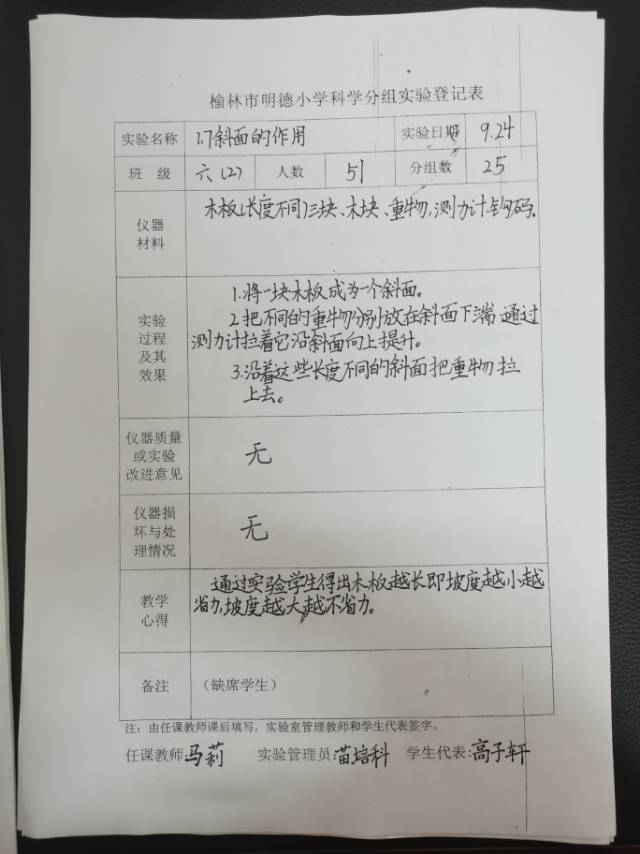 榆林市明德小学科学分组实验登记表
实验名称 1.7斜面的作用 实验日期 9.24
班 级 六(2) 人数 51 分组数 25
仪器材料 木板(长度不同)三块、木块、重物,测力计、钩码.
实验过程及其效果
1.将一块木板成为一个斜面。
2.把不同的重物分别放在斜面下端 通过
测力计拉着它沿斜面向上提升。
3.沿着这些长度不同的斜面把重物拉
上去。
仪器质量或实验改进意见 无
仪器损坏与处理情况 无
教学心得
通过实验学生得出木板越长即坡度越小越
省力,坡度越大越不省力。
备注 (缺席学生)
注:由任课教师课后填写,实验室管理教师和学生代表签字。
任课教师 马莉 实验管理员:苗培科 学生代表:高子轩